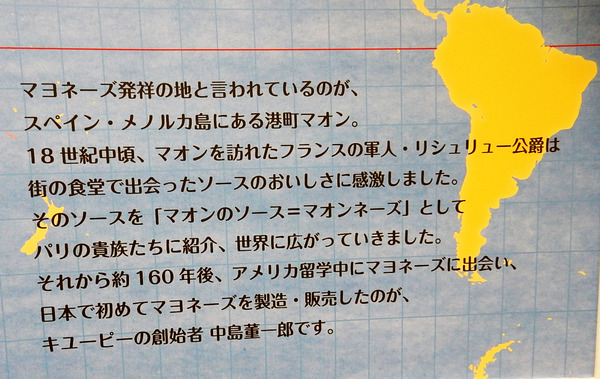 マヨネーズ発祥の地と言われているのが、
スペイン・メノルカ島にある港町マオン。
18世紀中頃、マオンを訪れたフランスの軍人・リシュリュー公爵は
街の食堂で出会ったソースのおいしさに感激しました。
そのソースを「マオンのソース=マオンネーズ」として
パリの貴族たちに紹介、世界に広がっていきました。
それから約160年後、アメリカ留学中にマヨネーズに出会い、
日本で初めてマヨネーズを製造・販売したのが、
キユーピーの創始者 中島董一郎です。